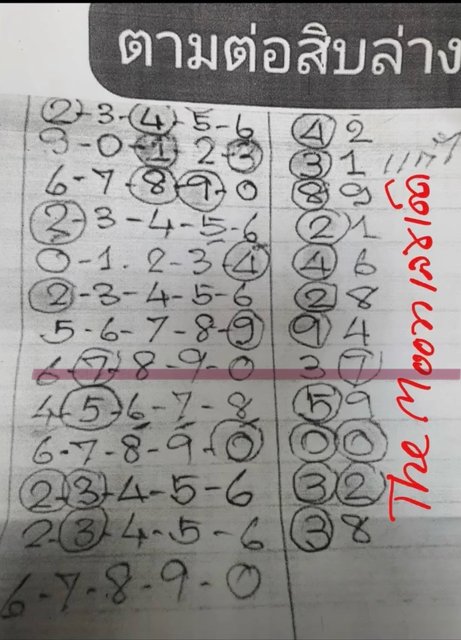 ตามต่อสิบล่าง
2-3-4-5-6 4 2
9-0-1 2-3 3 1
6-7-8-9-0 8 9
2-3-4-5-6 2 1
0-1. 2-3 4 4 6
2-3-4-5-6 2 8
5-6-7-8-9 9 4
6-7-8-9-0 3 7
4-5-6-7-8 5 9
6-7-8-9-0 0 0
2-3-4-5-6 3 2
2-3-4-5-6 3 8
6-7-8-9-0